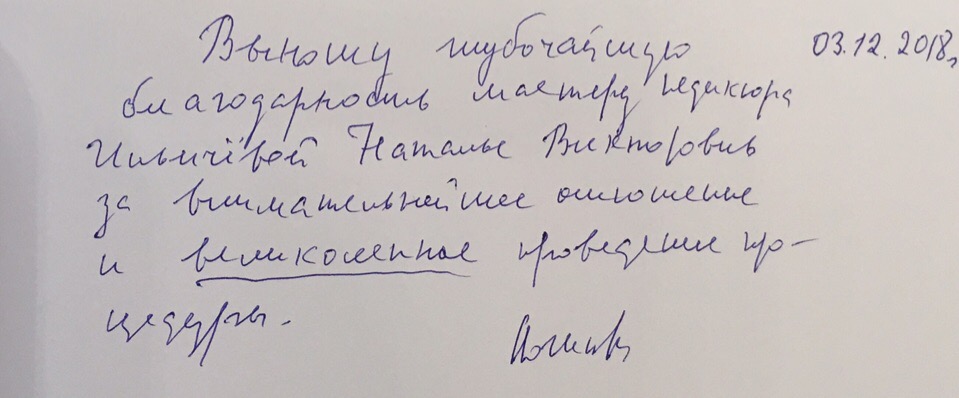 Выношу глубочайшую 03.12.2018г.
благодарность мастеру педикюра
Ильичёвой Наталье Викторовне
за внимательнейшее отношение
и великолепное проведение про-
цедуры.